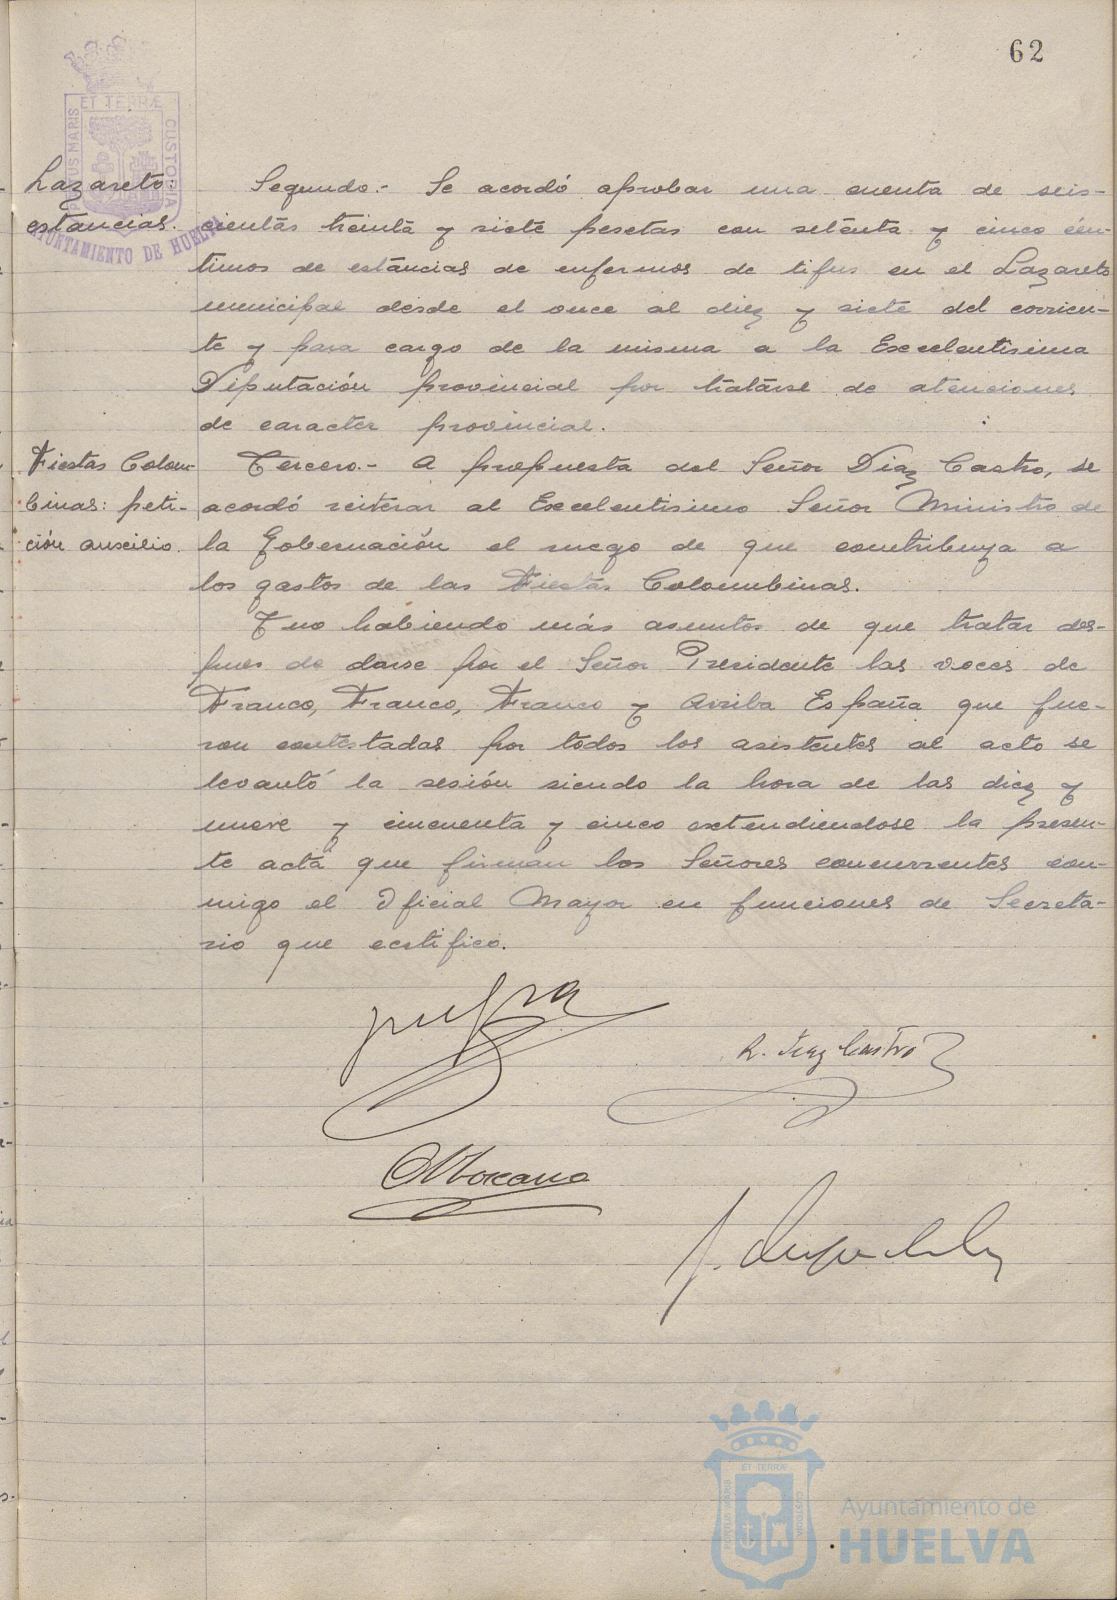 62
PORTUS MARIS ET TERRÆ CUSTODIA
AYUNTAMIENTO DE HUELVA
Lazareto:
estancias.
Segundo.- Se acordó aprobar una cuenta de seis-
cientas treinta y siete pesetas con setenta y cinco cén-
timos de estancias de enfermos de tifus en el Lazareto
municipal desde el once al diez y siete del corrien-
te y para cargo de la misma a la Excelentisima
Diputación provincial por tratarse de atenciones
de caracter provincial.
Fiestas Colom-
binas: peti-
ción auxilio.
Tercero.- A propuesta del Señor Diaz Castro, se
acordó reiterar al Excelentisimo Señor Ministro de
la Gobernación el ruego de que contribuya a
los gastos de las Fiestas Colombinas.
Y no habiendo más asuntos de que tratar des-
pues de darse por el Señor Presidente las voces de
Franco, Franco, Franco y Arriba España que fue-
ron contestadas por todos los asistentes al acto se
levantó la sesión siendo la hora de las diez y
nueve y cincuenta y cinco extendiendose la presen-
te acta que firman los Señores concurrentes con-
migo el Oficial Mayor en funciones de Secreta-
rio que certifico.
R. Diaz Castro
PORTUS MARIS ET TERRÆ CUSTODIA
Ayuntamiento de
HUELVA